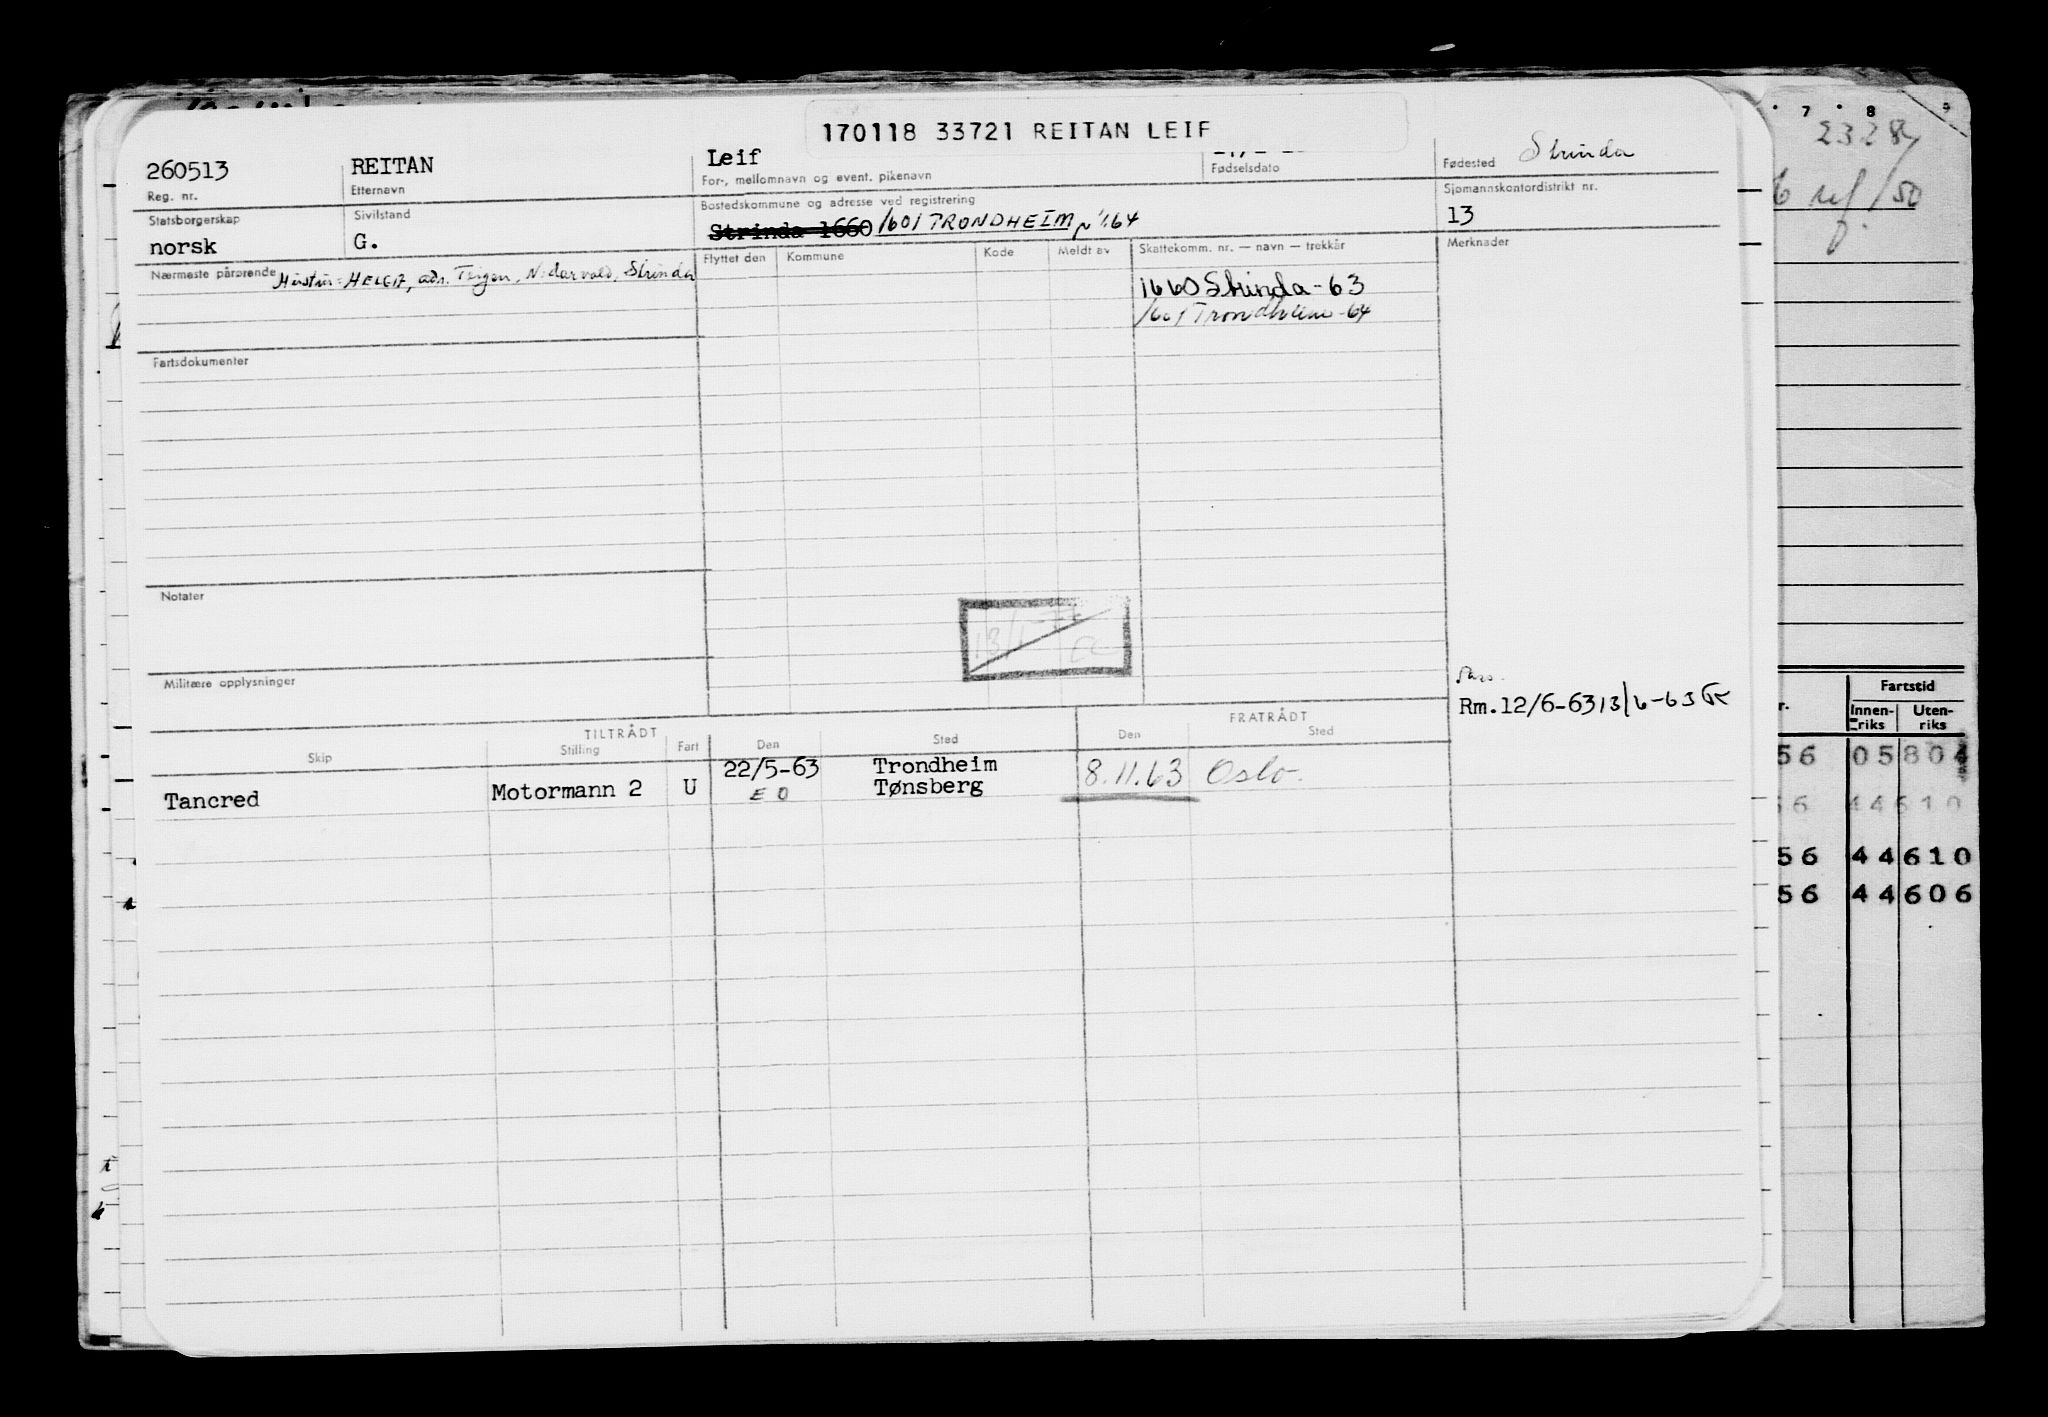 170118 33721 REITAN LEIF
260513 REITAN Leif Strinda
Reg. nr. Etternavn For-, mellomnavn og event. pikenavn Fødselsdato Fødested
Statsborgerskap Sivilstand Bostedskommune og adresse ved registrering Sjømannskontordistrikt nr.
norsk G. Strinda 1660 1601 TRONDHEIM 1.64 13
Nærmeste pårørende Hustru: HELGA, adr. Teigen, Nidarvold, Strinda
Flyttet den Kommune Kode Meldt av Skattekomm. nr. — navn — trekkår Merknader
1660 Strinda - 63
1601 Trondheim - 64
Fartsdokumenter
Notater
Militære opplysninger
Rm. 12/6-63 13/6-63
TILTRÅDT FRATRÅDT
Skip Stilling Fart Den Sted Den Sted
Tancred Motormann 2 U 22/5-63 Trondheim 8.11.63 Oslo.
E O Tønsberg
7 8 9
2328
/50
Fartstid
r. Innen-riks Uten-riks
56 05 804
56 44 610
56 44 610
56 44 606